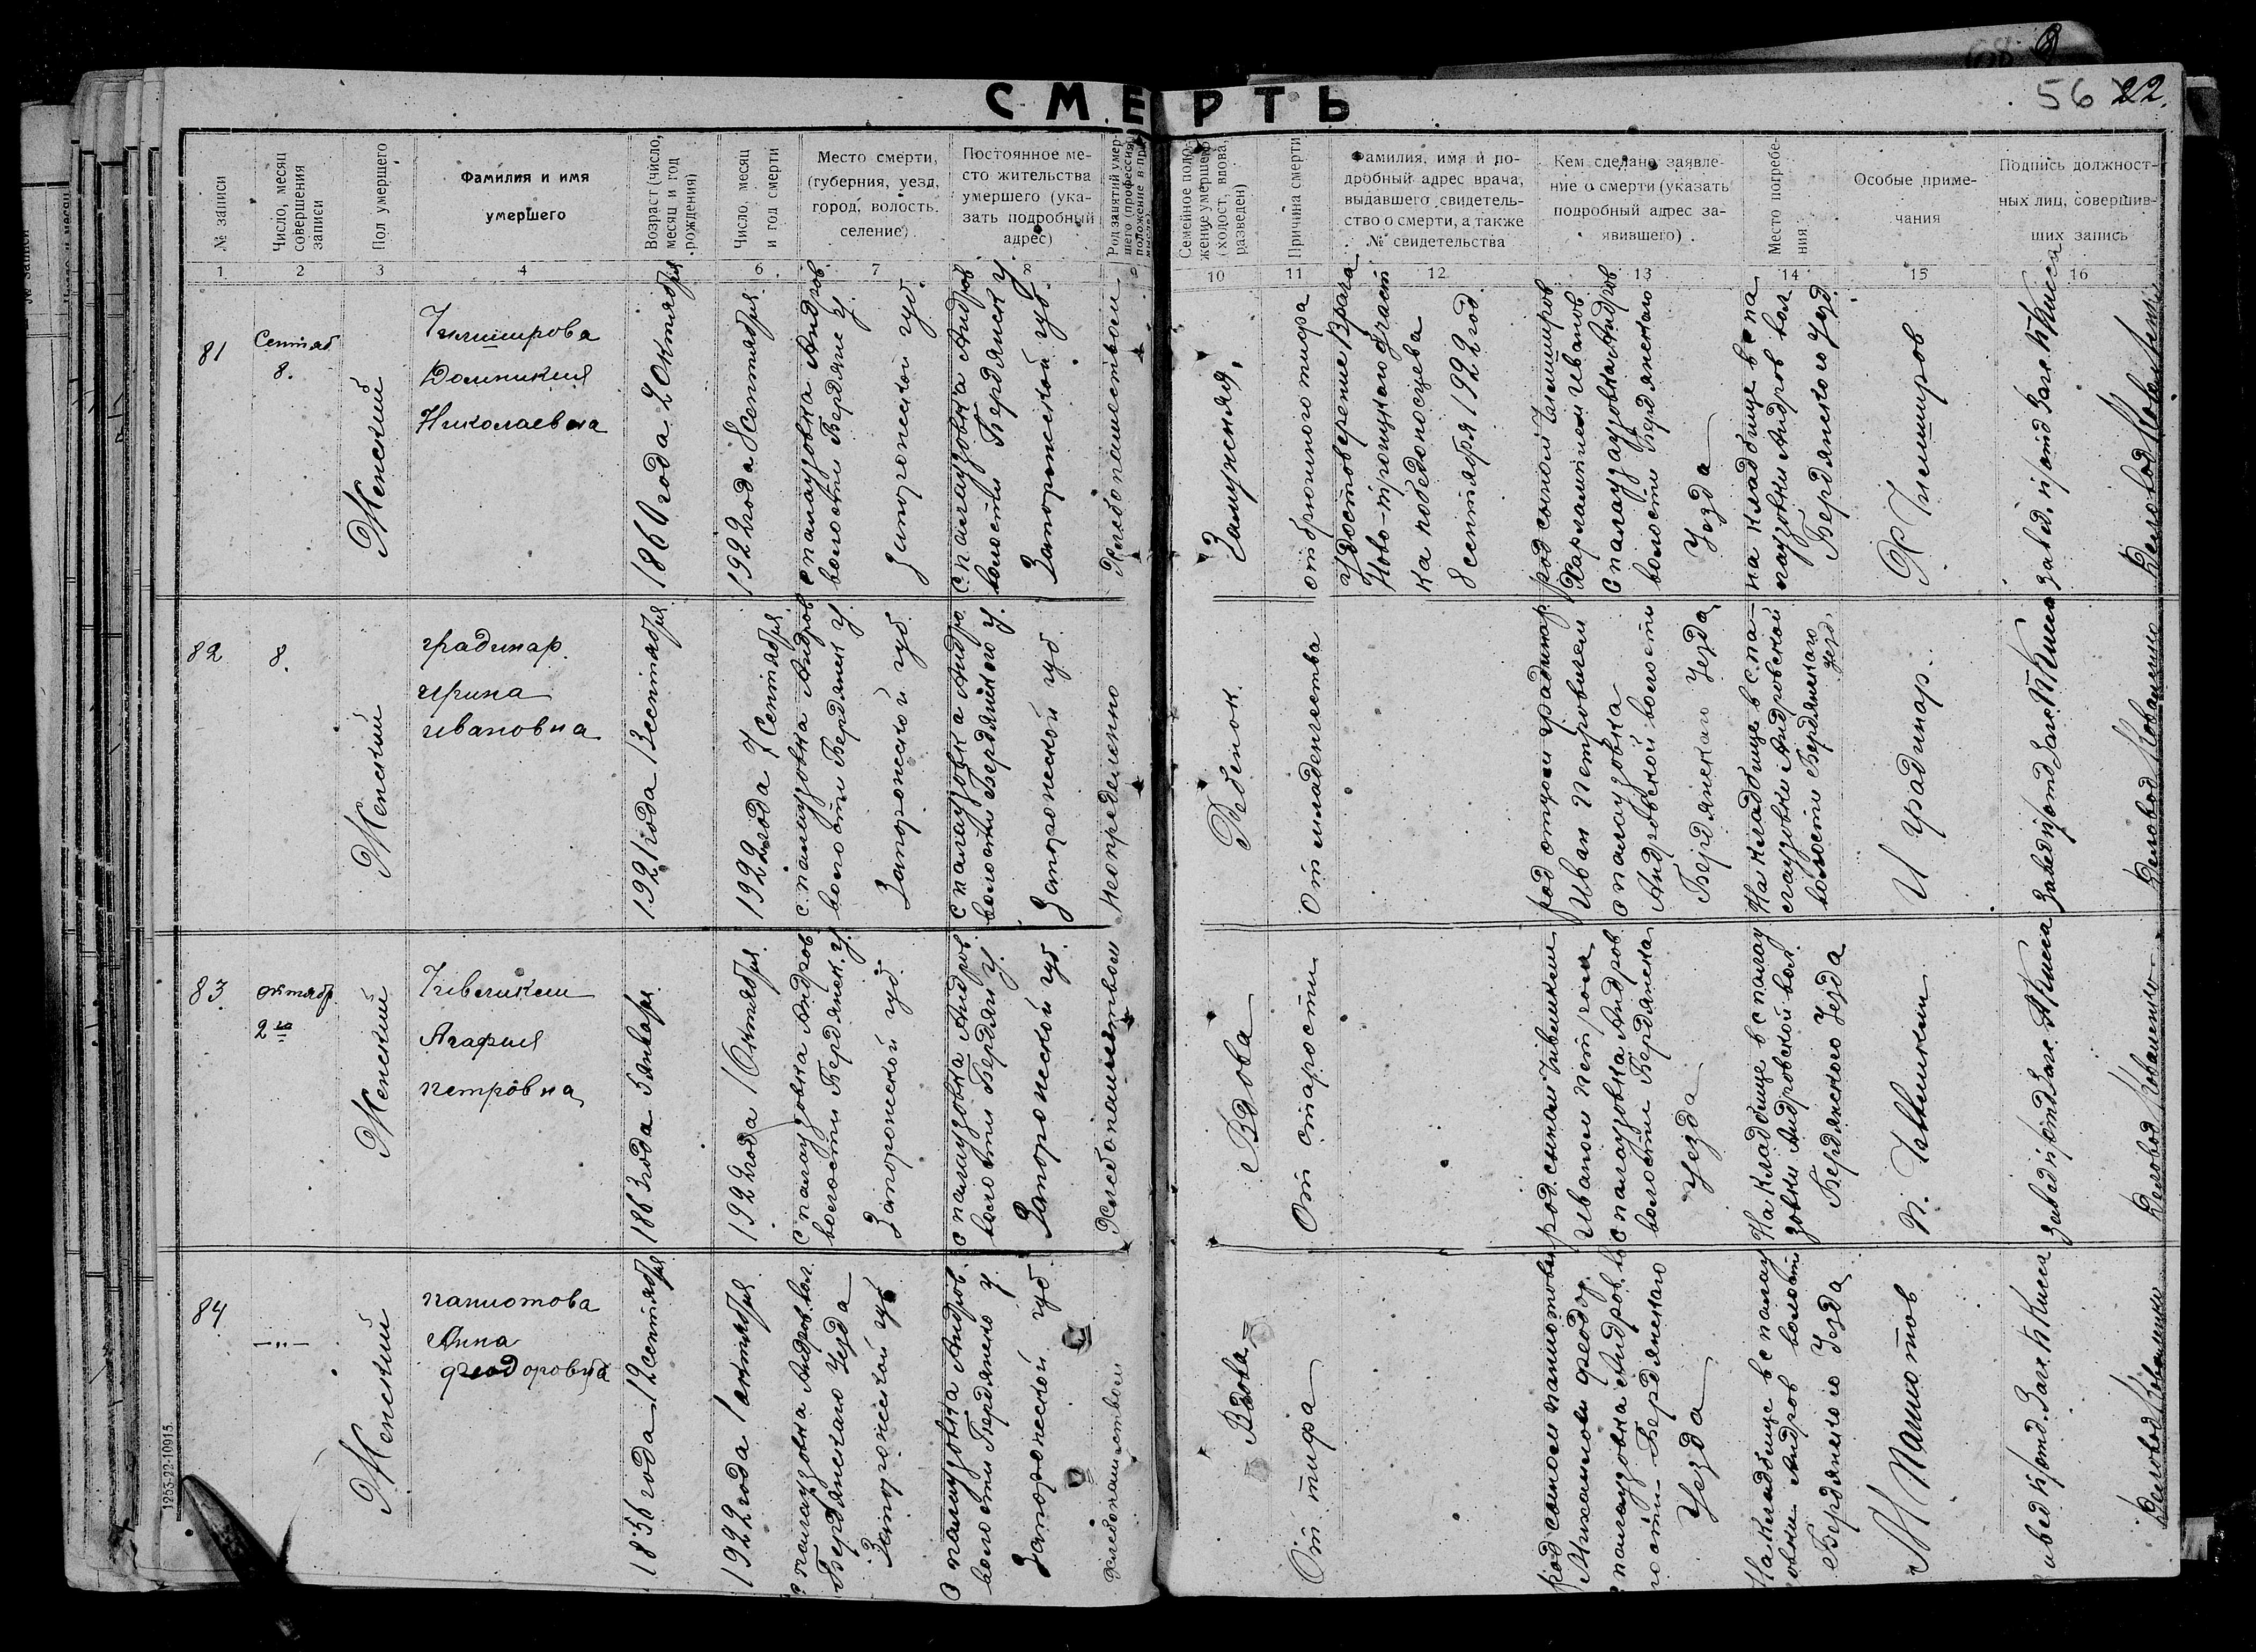 СМЕРТЬ
56 22.
№ записи
Число, месяц
совершения
записи
Пол умершего
Фамилия и имя
умершего
Возраст (число,
месяц и год
рождения)
Число, месяц
и год смерти
Место смерти,
(губерния, уезд,
город, волость,
селение)
Постоянное ме-
сто жительства
умершего (ука-
зать подробный
адрес)
Род занятий умер-
шего (профессия,
Семейное поло-
жение умершего
(холост, вдова,
разведен)
Причина смерти
Фамилия, имя и по-
дробный адрес врача,
выдавшего свидетель-
ство о смерти, а также
№ свидетельства
Кем сделано заявле-
ние о смерти (указать
подробный адрес за-
явившего)
Место погребе-
ния
Особые приме-
чания
Подпись должност-
ных лиц, совершив-
ших запись
1 2 3 4 6 7 9 10 11 12 13 14 15 16
81
Сентяб
8.
Женский
Чимширова
Домникия
Николаевна
1860 года 2 Октября
1922 года 8 Сентября
с палаузовка Андров
волости Бердянс у.
Запорожской губ.
с палаузовка Андров
волости Бердянск у
Запорожской губ.
Хлебопашеством
Замужняя
от брюшного тифа
Удостоверение Врача
Ново-троицкого участ
ка победоносцева
8 сентября 1922 год
род сыном Чимширов
Харлампием Иванов
с палаузовка Андров
волости Бердянского
Уезда
на кладбище в с па
лаузовки Андров вол
Бердянского Уезд.
Х Чимширов
завед. п/отд Загс К Кисса
Деловод Коваленко
82
8.
Женский
градинар.
ирина
ивановна
1921 года 13 сентября
1922 года 7 Сентября
с. палаузовка Андров
волости Бердянск У.
Запорожской губ.
с палаузовка Андро.
волости Бердянского у.
Запорожской губ.
Неопределенно
Ребенок.
От младенчества
род отцом градинар
Иван Петровичем
с палаузовка
Андровской волости
Бердянскаго Уезда
На кладбище в с. па-
лаузовки Андровской
волости Бердянскаго
уезд.
И градинар.
Завед п/отд Загс. К Кисса
Деловод Коваленко
83
октябр
2го
Женский
Чивликли
Агафия
петровна
1863 года 5 января
1922 года 1 Октября
с палаузовка Андров
волости Бердянск. у.
Запорожской губ.
с палаузовка Андров.
волости Бердян у.
Запорожской губ.
Хлебопашеством
Вдова
От старости
род. сыном Чивликли
Иваном Петрова
с палаузовка Андров
волости Бердянска
Уезда
На кладбище в с палау
зовки Андровской вол.
Бердянского Уезда
п. Чивликли
завед п/отд Загс. К Кисса
Деловод Коваленко
84
—"—
Женский
панютова
Анна
феодоровна
1856 года 12 сентября
1922 года 1 октября
с палаузовка Андров вол.
Бердянскаго Уезда
Запорожской губ
с палаузовка Андров.
волости Бердянско у
Запорожской губ.
Хлебопашеством
Вдова
От тифа
род сыном панютовы
Михаилом феодор.
с палаузовка Андров. во
лости Бердянскаго
Уезда
На кладбище в с палау
зовки Андров волости
Бердянскаго Уезда
М Панютов
завед п/отд. Загс. К Кисса
Деловод Коваленко
1253-22-10915